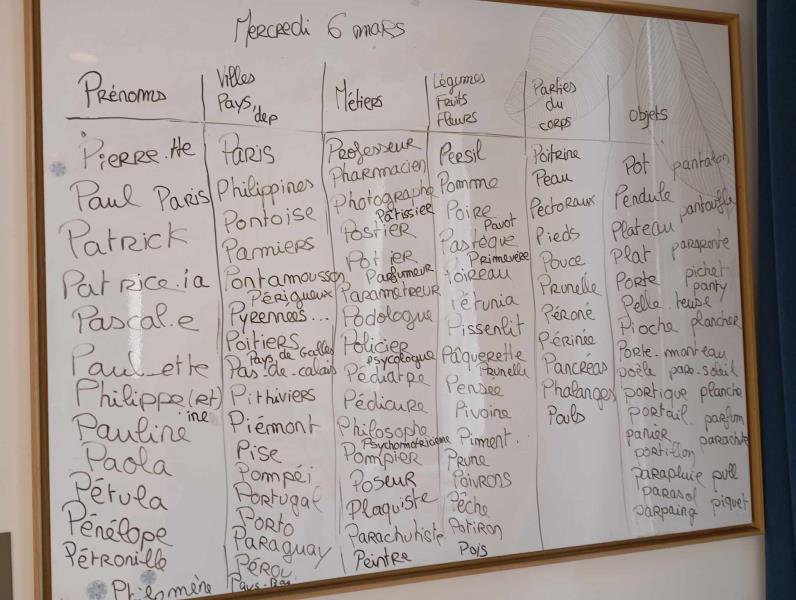 Mercredi 6 mars
Prénoms
Pierre.tte
Paul Paris
Patrick
Patrice.ia
Pascal.e
Paul_ette
Philippe(et)
ine
Pauline
Paola
Pétula
Pénélope
Pétronille
Philomène
Villes
Pays, dep
Paris
Philippines
Pontoise
Pamiers
Pontamousson
Périgueux
Pyrennées...
Poitiers
Pays de Galles
Pas-de-calais
Pithiviers
Piémont
Pise
Pompéi
Portugal
Porto
Paraguay
Pérou
Pays-Bas
Métiers
Professeur
Pharmacien
Photographe
Pâtissier
Postier
Potier
Parfumeur
Paramétreur
Podologue
Policier
Psycologue
Pédiatre
Pédicure
Philosophe
Psychomotricienne
Pompier
Poseur
Plaquiste
Parachutiste
Peintre
Légumes
Fruits
Fleurs
Persil
Pomme
Poire
Pavot
Pastèque
Primevère
Poireau
Pétunia
Pissenlit
Pâquerette
Prunelle
Pensée
Pivoine
Piment.
Prune
Poivrons
Pêche
Potiron
Pois
Parties
du
corps
Poitrine
Peau
Pectoraux
Pieds
Pouce
Prunelle
Péroné
Périnée
Pancréas
Phalanges
Poils
Objets
Pot pantalon
Pendule pantoufle
Plateau
Plat parapente
Porte pichet
panty
Pelle.teuse
Pioche plancher
Porte-manteau
poèle para-soleil
portique planche
portail parfum
panier parachute
portillon
parapluie pull
parasol
parpaing piquet